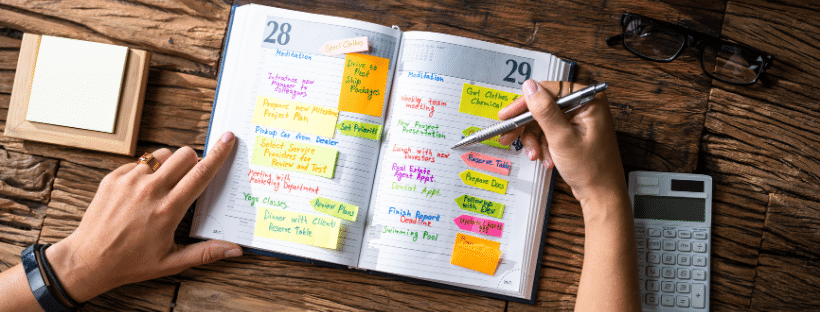 28
Meditation
Introduce new
Manager to
colleagues
Prepare New Milestone
Project Plan
Pickup Car from Dealer
Select Service
Providers for
Review and Test
Meeting with
Marketing Department
Yoga Classes
Dinner with Client
Reserve Table
Sport Clothes
Drive to
Post
Ship
Packages
Set Priority
Review Plans
29
Meditation
Weekly team
meeting
New Project
Presentation
Lunch with new
investors
Real Estate
Agent Appt.
Dentist Appt.
Finish Report
Deadline
Swimming Pool
Get Clothes
Chemical
Reserve Table
Prepare Docs
Followup
with Dev